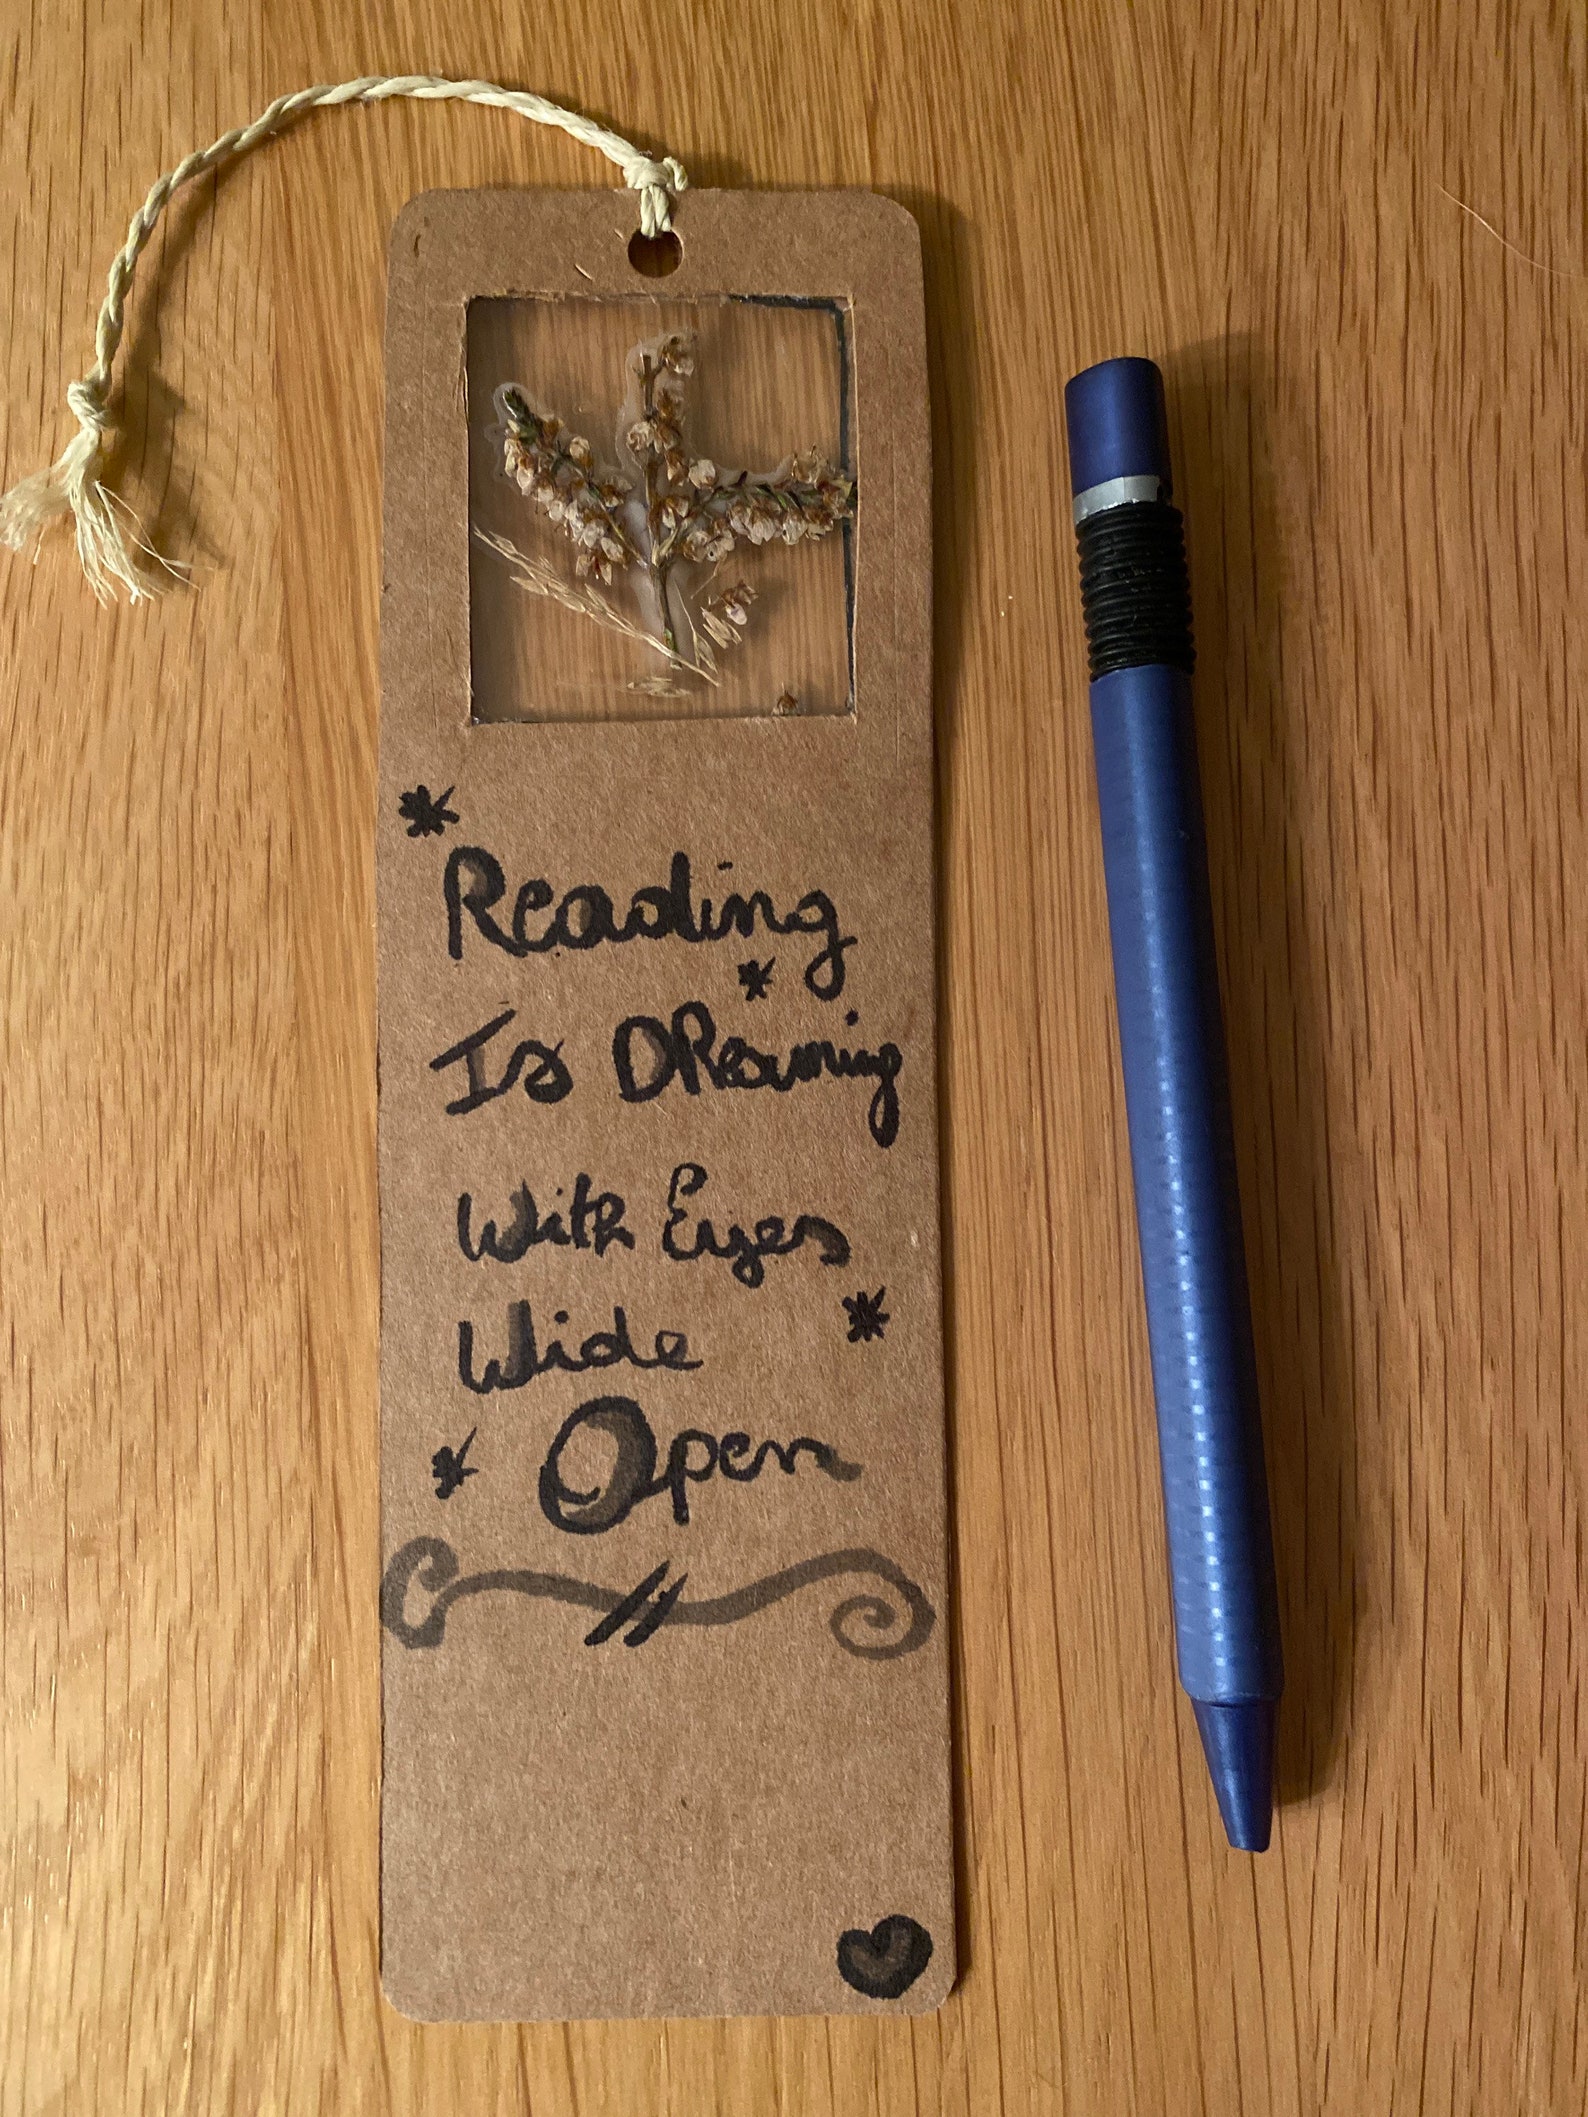 Reading
Is DReaming
With Eyes
Wide
Open